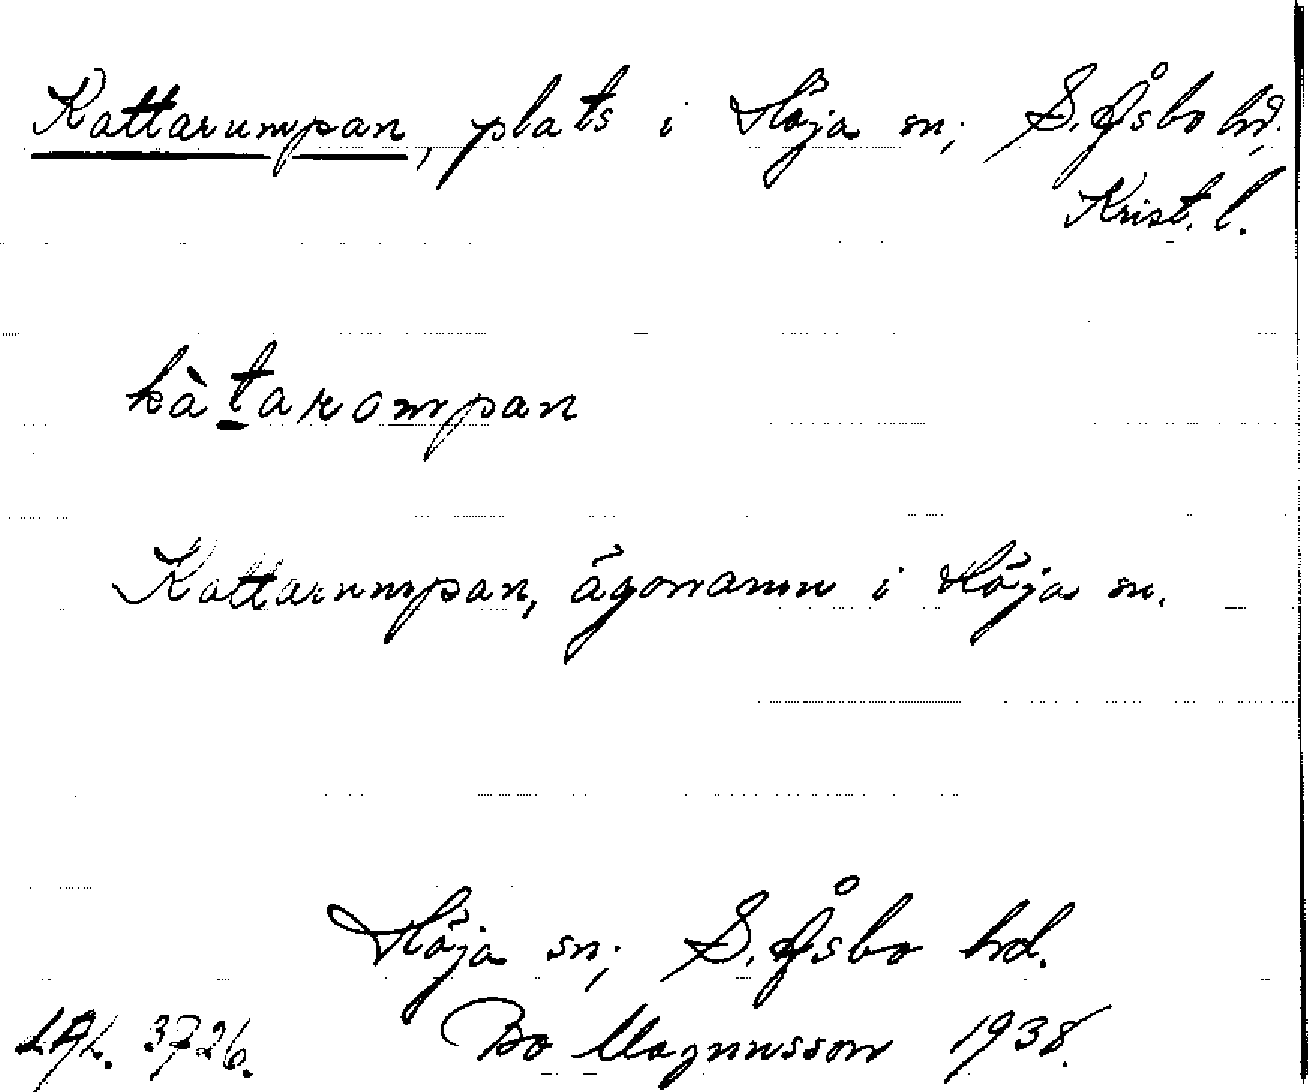 Kattarumpan, plats i Höja sn; S. Åsbo hd.
Krist. l.
kàtarompan
Kattarumpan, ägonamn i Höja sn.
Höja sn; S. Åsbo hd.
LAL. 3726. Bo Magnusson 1938.